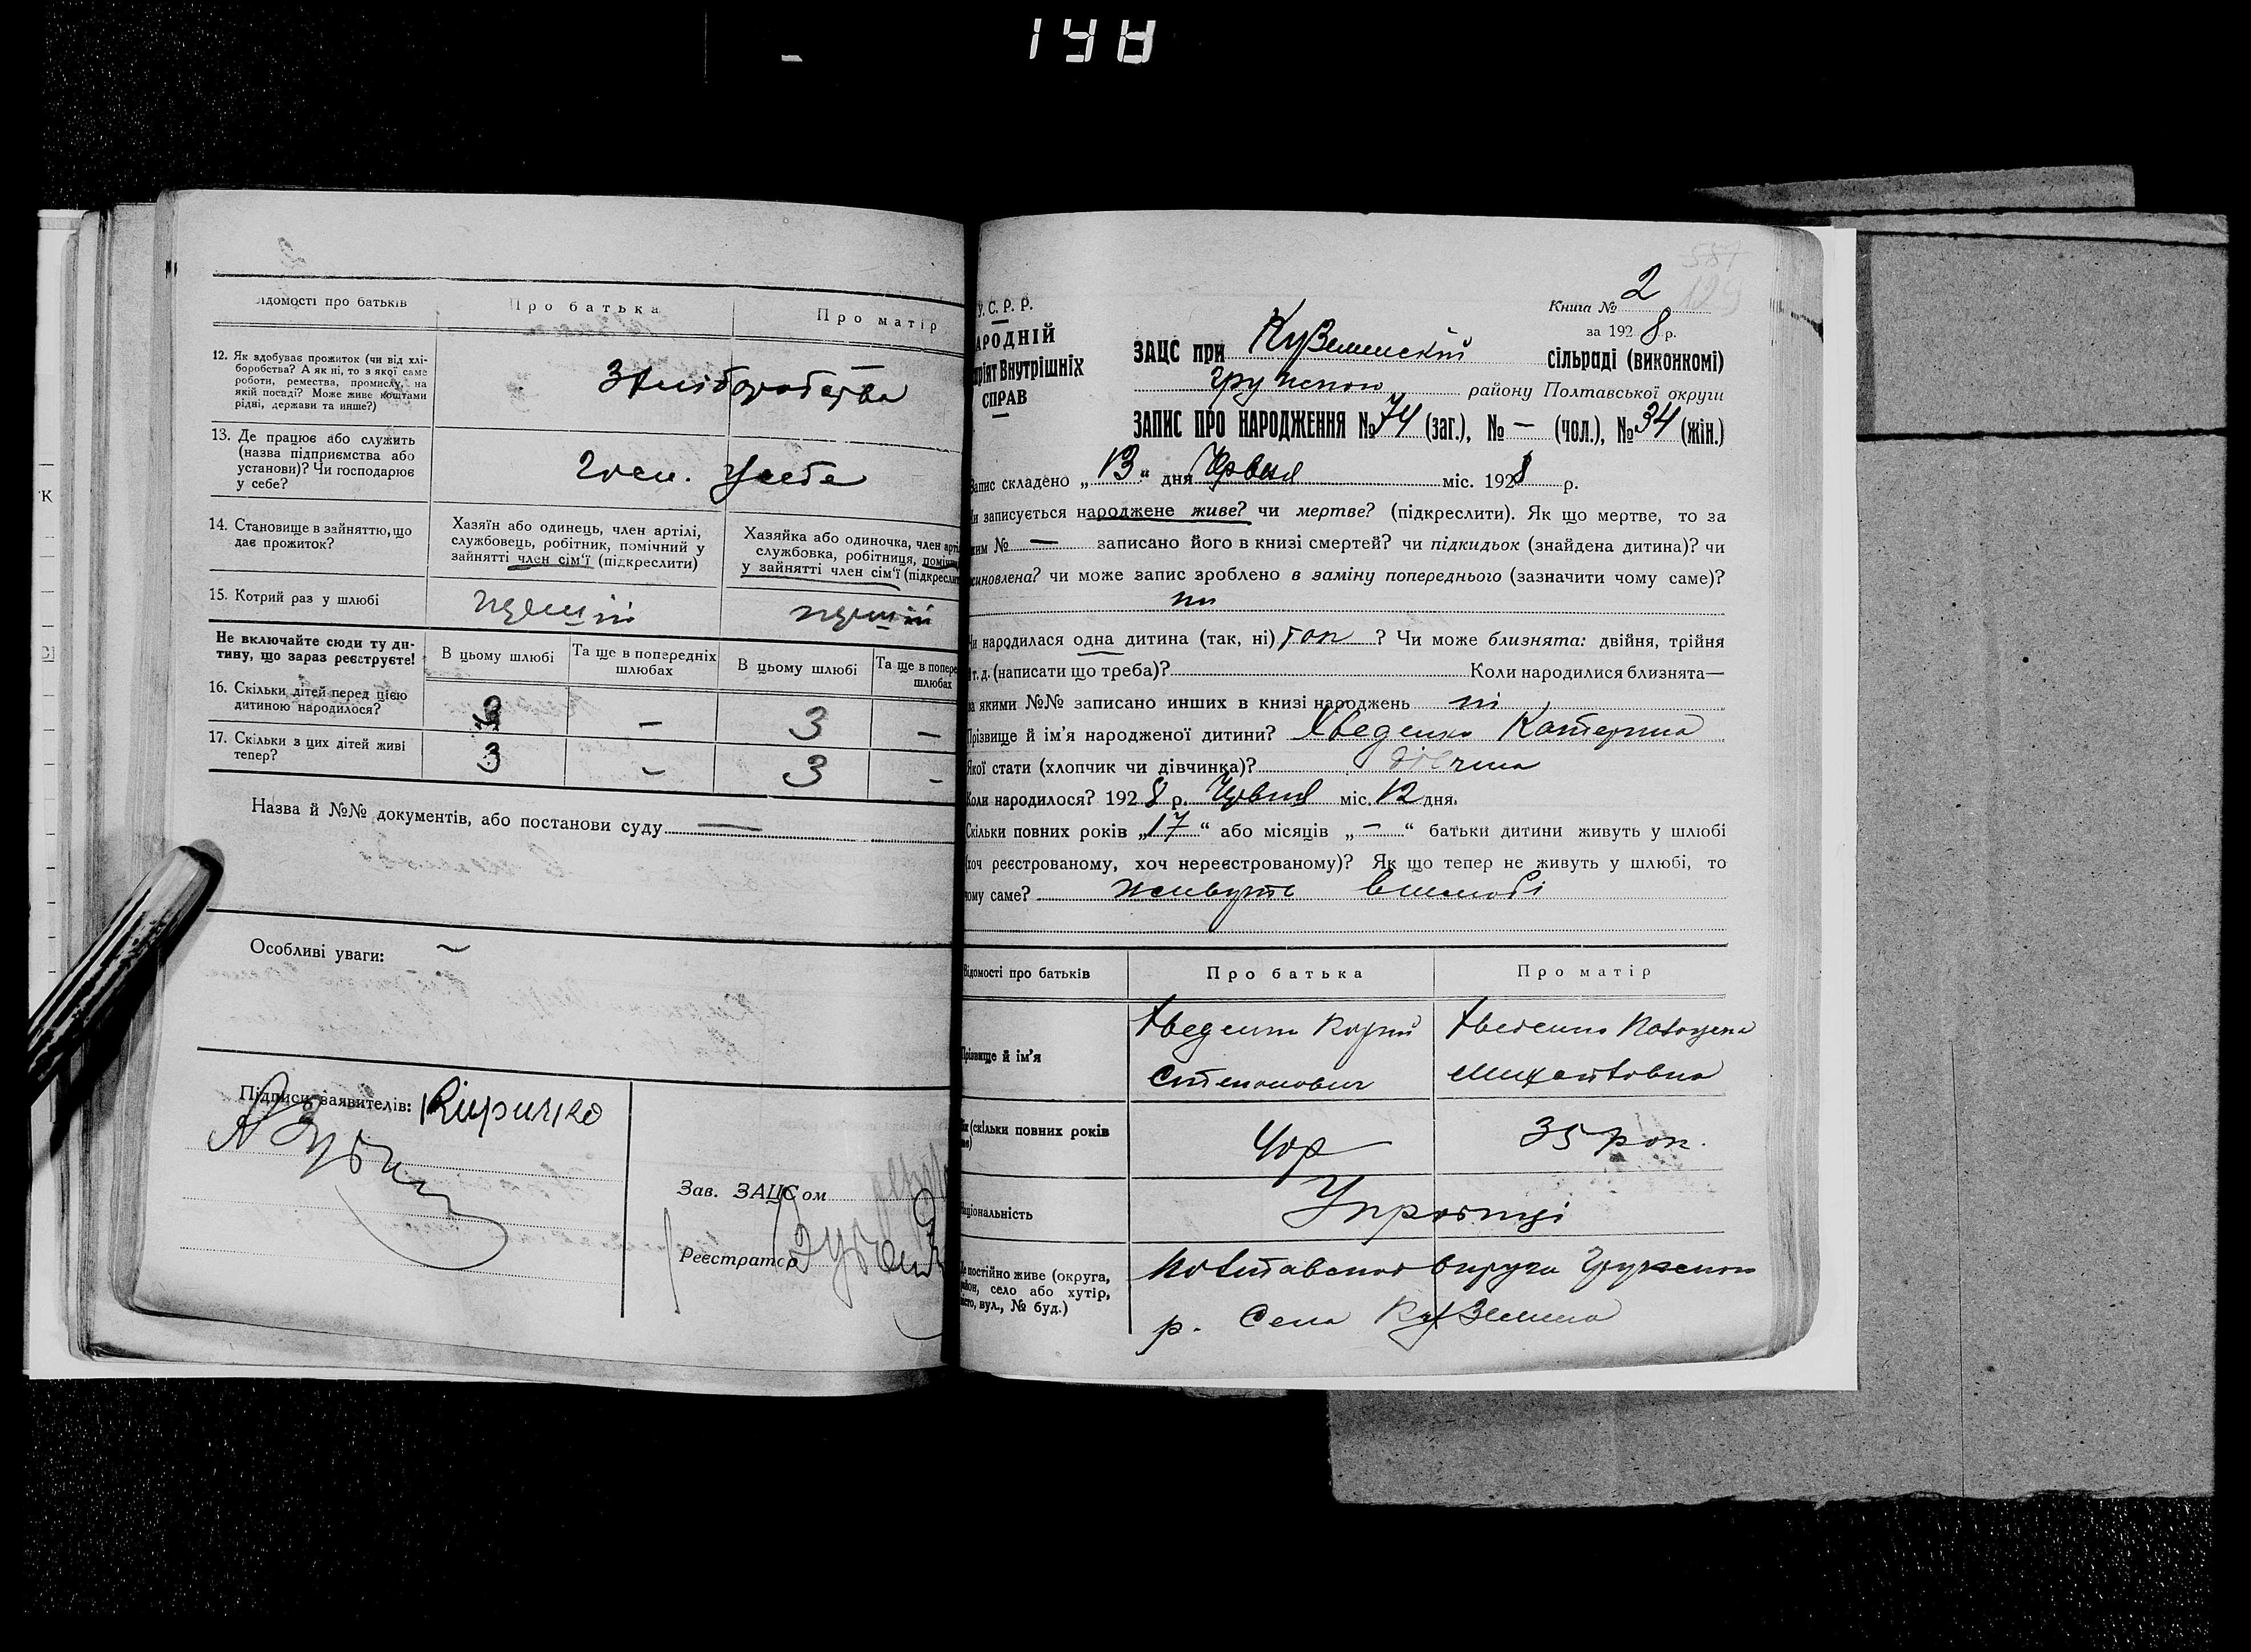 198
Відомості про батьків
Про батька
Про матір
12. Як здобуває прожиток (чи від хлі-
боробства? А як ні, то з якої саме
роботи, ремества, промислу, на
якій посаді? Може живе коштами
рідні, держави та инше?)
З хліборобства
13. Де працює або служить
(назва підприємства або
установи)? Чи господарює
у себе?
Госп. у себе
14. Становище в зайняттю, що
дає прожиток?
Хазяїн або одинець, член артілі,
службовець, робітник, помічний у
зайнятті член сім'ї (підкреслити)
Хазяйка або одиночка, член арті
службовка, робітниця, поміч
у зайнятті член сім'ї (підкресли
15. Котрий раз у шлюбі
перший
перший
Не включайте сюди ту ди-
тину, що зараз реєструєте!
В цьому шлюбі
Та ще в попередніх
шлюбах
В цьому шлюбі
Та ще в попере
шлюбах
16. Скільки дітей перед цією
дитиною народилося?
3 – 3 –
17. Скільки з цих дітей живі
тепер?
3 – 3 –
Назва й №№ документів, або постанови суду —
Особливі уваги: ~
Підписи заявителів: Кіричко
Зав. ЗАЦСом
Реєстратор
У. С. Р. Р.
АРОДНІЙ
ріят Внутрішніх
СПРАВ
Книга № 2
за 1928 р.
ЗАЦС при Куземенскій сільраді (виконкомі)
Грунской району Полтавської округи
ЗАПИС ПРО НАРОДЖЕННЯ № 74 (заг.), № – (чол.), № 34 (жін.)
Запис складено „13“ дня Червня міс. 1928 р.
Чи записується народжене живе? чи мертве? (підкреслити). Як що мертве, то за
яким № — записано його в книзі смертей? чи підкидьок (знайдена дитина)? чи
усиновлена? чи може запис зроблено в заміну попереднього (зазначити чому саме)?
ні
Чи народилася одна дитина (так, ні) так ? Чи може близнята: двійня, трійня
і т. д. (написати що треба)? Коли народилися близнята—
за якими №№ записано инших в книзі народжень ні
Прізвище й ім'я народженої дитини? Хведенко Катерина
Якої стати (хлопчик чи дівчинка)? дівчина
Коли народилося? 1928 р. Червня міс. 12 дня.
Скільки повних років „17“ або місяців „–“ батьки дитини живуть у шлюбі
(хоч реєстрованому, хоч нереєстрованому)? Як що тепер не живуть у шлюбі, то
чому саме? живуть в шлюбі
Відомості про батьків
Про батька
Про матір
Прізвище й ім'я
Хведенко
Степанович
Хведенко
Михайловна
Вік (скільки повних років
має)
40 р
35 рок.
Національність
Українці
Де постійно живе (округа,
район, село або хутір,
місто, вул., № буд.)
Полтавської Округи Грунської
р. Села Куземина